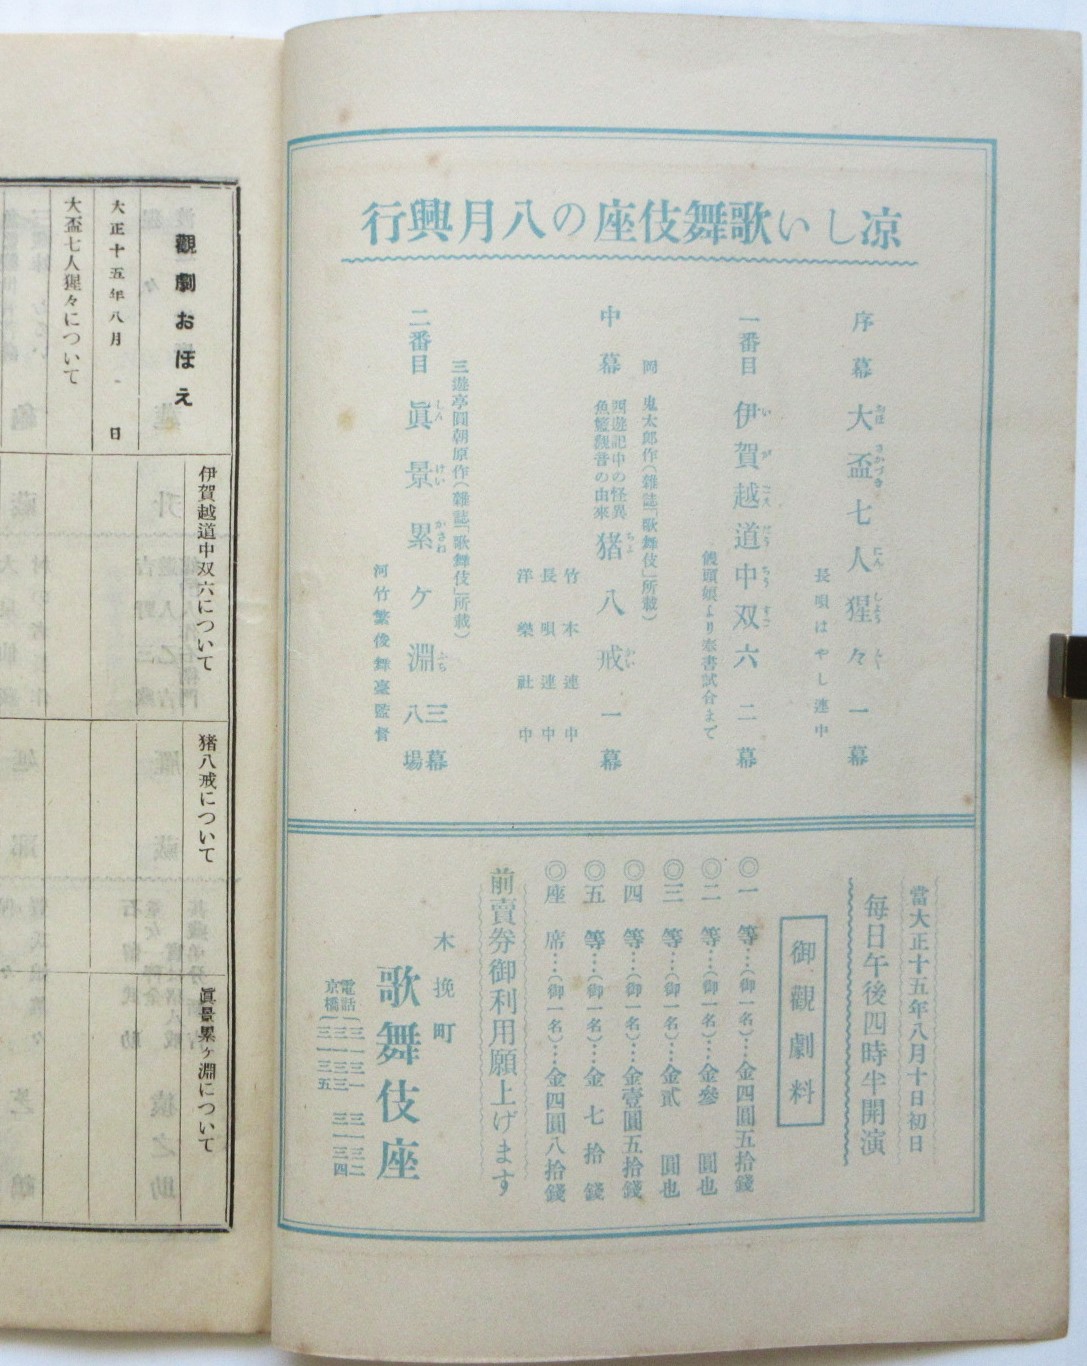 凉しい歌舞伎座の八月興行
序幕 大盃七人猩々 一幕
おほ さかづき にん しよう
長唄はやし連中
一番目 伊賀越道中双六 二幕
い が ごえ だう ちう すご
饅頭娘より奉書試合まで
岡 鬼太郎作(雜誌「歌舞伎」所載)
中幕 西遊記中の怪異 魚籃觀音の由來 猪八戒 一幕
ちよ かい
竹本連中
長唄連中
洋樂社中
三遊亭圓朝原作(雜誌「歌舞伎」所載)
二番目 眞景累ケ淵 三幕八場
しん けい かさね ふち
河竹繁俊舞臺監督
當大正十五年八月十日初日
毎日午後四時半開演
御觀劇料
◎一等…(御一名)…金四圓五拾錢
◎二等…(御一名)…金參圓也
◎三等…(御一名)…金貳圓也
◎四等…(御一名)…金壹圓五拾錢
◎五等…(御一名)…金七拾錢
◎座席…(御一名)…金四圓八拾錢
前賣券御利用願上げます
木挽町
歌舞伎座
電話 京橋 (三一三一 三一三二
三一三三 三一三四
三一三五
觀劇おぼえ
大正十五年八月 日
大盃七人猩々について
伊賀越道中双六について
猪八戒について
眞景累ヶ淵について